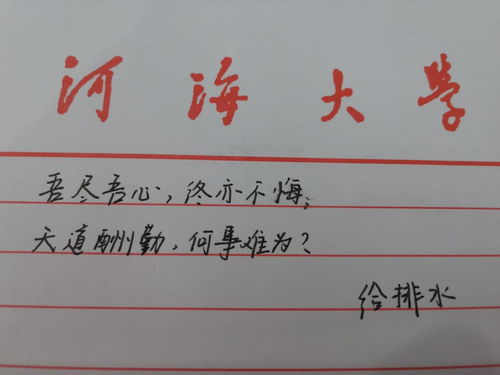 河海大學
吾尽吾心，终亦不悔；
天道酬勤，何事难为？
给排水